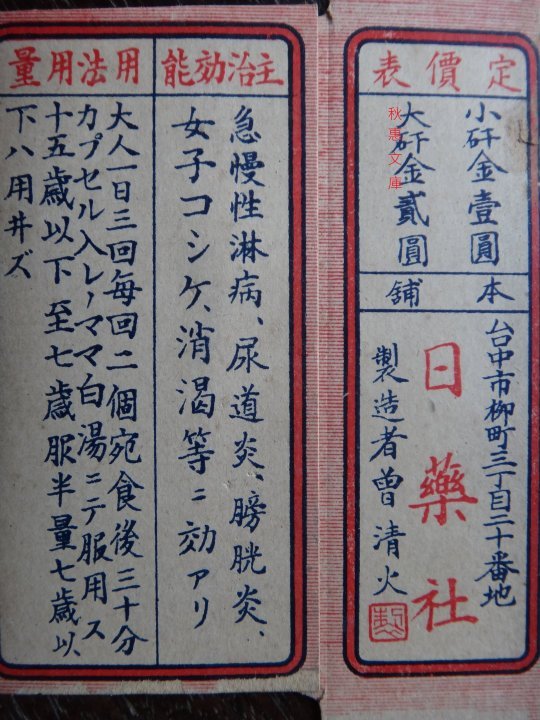 定價表
小矸金壹圓
大矸金貳圓
本舖
台中市柳町三丁目二十番地
日藥社
製造者曾清火
主治効能
急慢性淋病、尿道炎、膀胱炎、
女子コシケ、消渇等ニ効アリ
用法用量
大人一日三回每回二個宛食後三十分
カプセル入レノママ白湯ニテ服用ス
十五歲以下至七歲服半量七歲以
下ハ用井ズ
秋惠文庫